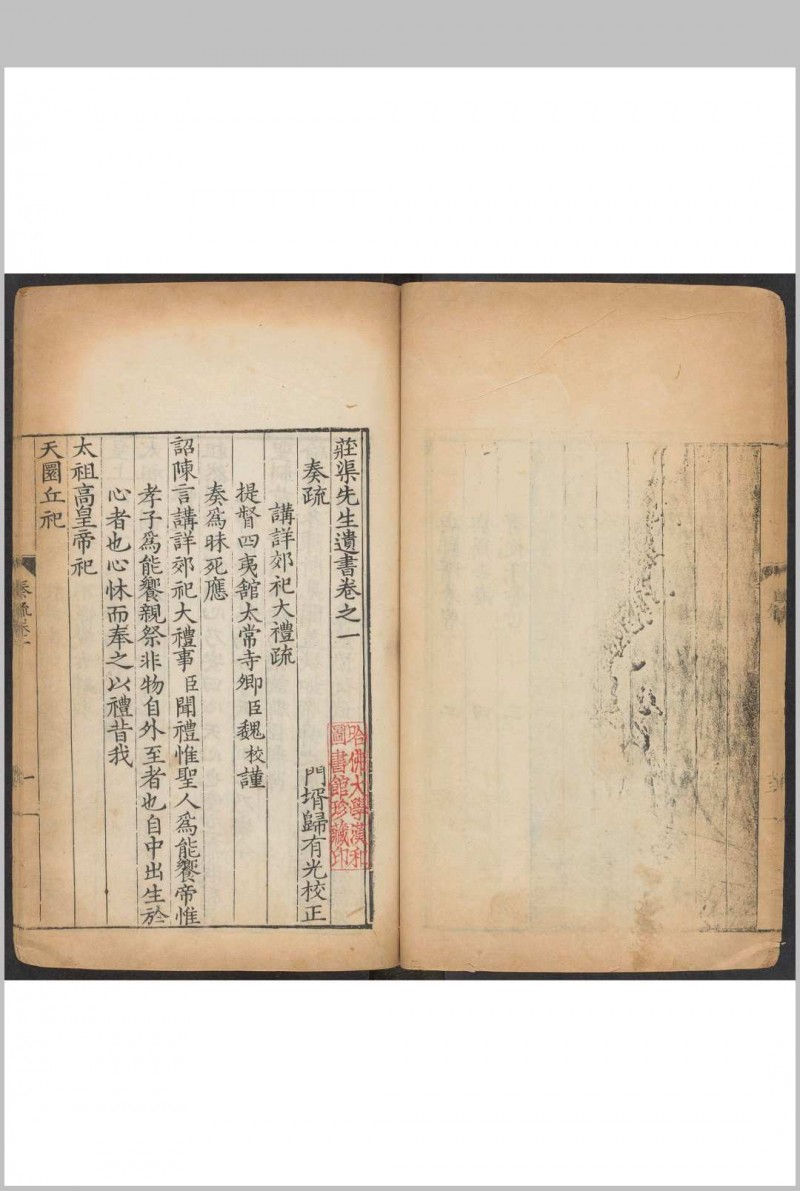 莊渠先生遺書卷之一
奏疏
門壻歸有光校正
講詳郊祀大禮疏
提督四夷舘太常寺卿臣魏校謹
奏爲昧死應
詔陳言講詳郊祀大禮事臣聞禮惟聖人爲能饗帝惟
孝子爲能饗親祭非物自外至者也自中出生於
心者也心怵而奉之以禮昔我
太祖高皇帝祀
天圜丘祀
哈佛大學漢和
圖書館珍藏印
一